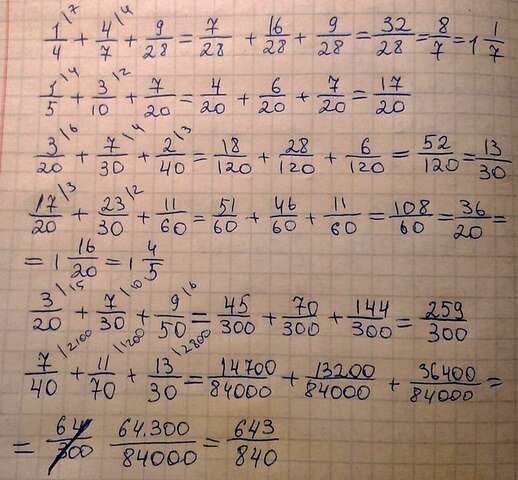 1/4\7 + 4/7\4 + 9/28 = 7/28 + 16/28 + 9/28 = 32/28 = 8/7 = 1 1/7
1/5\4 + 3/10\2 + 7/20 = 4/20 + 6/20 + 7/20 = 17/20
3/20\6 + 7/30\4 + 2/40\3 = 18/120 + 28/120 + 6/120 = 52/120 = 13/30
17/20\3 + 23/30\2 + 11/60 = 51/60 + 46/60 + 11/60 = 108/60 = 36/20 =
= 1 16/20 = 1 4/5
3/20\15 + 7/30\10 + 9/50\6 = 45/300 + 70/300 + 144/300 = 259/300
7/40\2100 + 11/70\1200 + 13/30\2800 = 14700/84000 + 13200/84000 + 36400/84000 =
= 64/300 64.300/84000 = 643/840